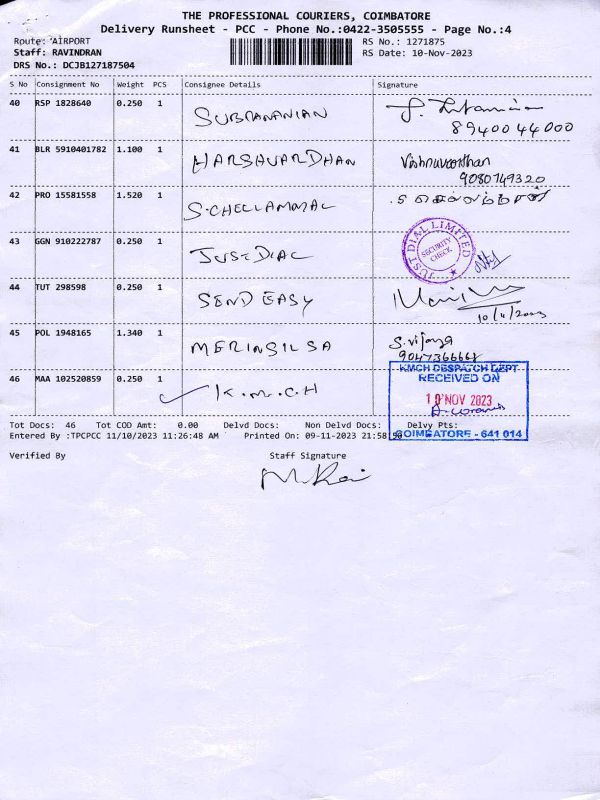 THE PROFESSIONAL COURIERS, COIMBATORE
Delivery Runsheet - PCC - Phone No.:0422-3505555 - Page No.:4
Route: AIRPORT RS No.: 1271875
Staff: RAVINDRAN RS Date: 10-Nov-2023
DRS No.: DCJB127187504
S No Consignment No Weight PCS Consignee Details Signature
40 RSP 1828640 0.250 1 SUBRAMANIAN
8940044000
41 BLR 5910401782 1.100 1 HARSHVARDHAN Vishnuvardhan
9080749320
42 PRO 15581558 1.520 1 S.CHELLAMMAL
43 GGN 910222787 0.250 1 JUST DIAL JUST DIAL LIMITED SECURITY CHECK
44 TUT 298598 0.250 1 SEND EASY
10/11/2023
45 POL 1948165 1.340 1 MERINSILSA S.vijaya
9047366668
46 MAA 102520859 0.250 1 K.M.C.H KMCH DESPATCH DEPT
RECEIVED ON
10 NOV 2023
COIMBATORE - 641 014
Tot Docs: 46 Tot COD Amt: 0.00 Delvd Docs: Non Delvd Docs: Delvy Pts:
Entered By :TPCPCC 11/10/2023 11:26:48 AM Printed On: 09-11-2023 21:58
Verified By Staff Signature